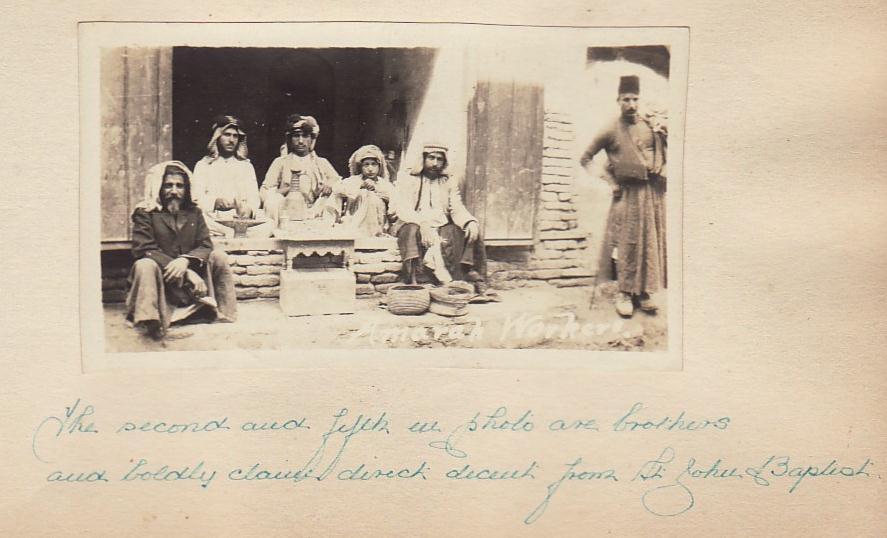 Amarah Workers.
The second and fifth in photo are brothers
and boldly claim direct decent from St John Baptist.